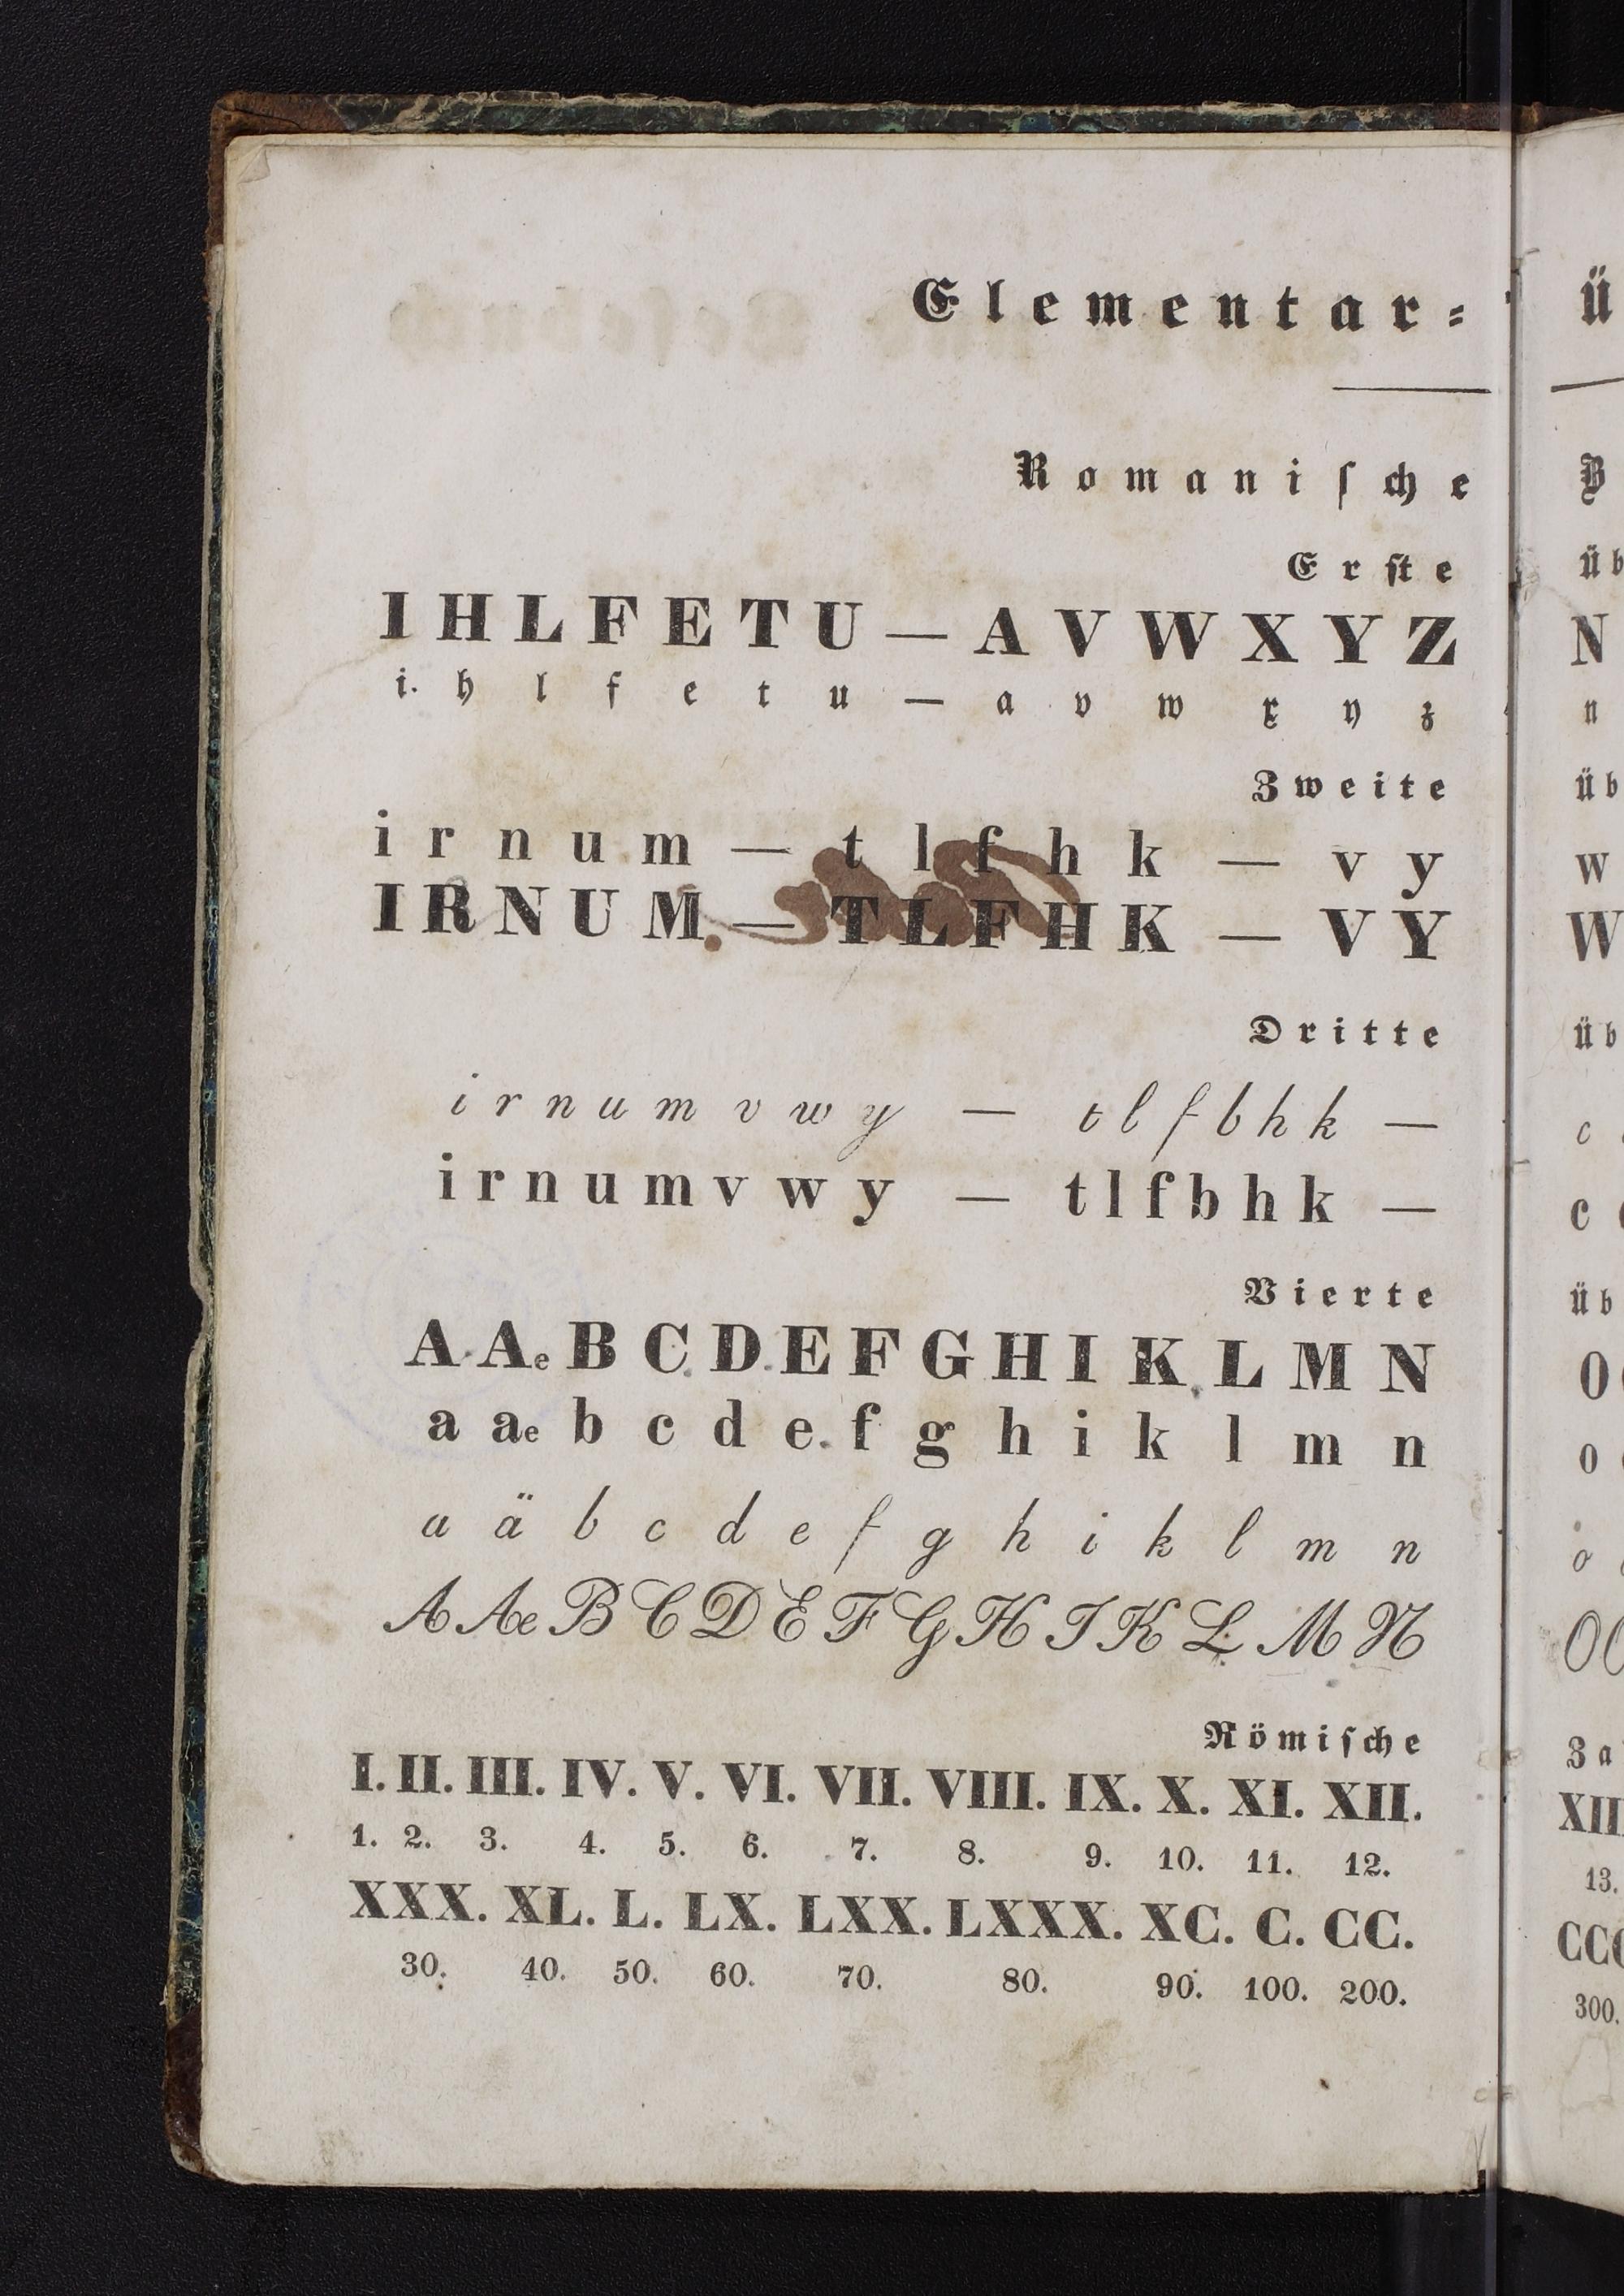 Elementar-
Romanische
Erste
I H L F E T U — A V W X Y Z
i. h l f e t u — a v w x y z
Zweite
i r n u m — t l f h k — v y
I R N U M — T L F H K — V Y
Dritte
i r n u m v w y — t l f b h k —
i r n u m v w y — t l f b h k —
Vierte
A Ae B C D E F G H I K L M N
a ae b c d e f g h i k l m n
a ä b c d e f g h i k l m n
A Ae B C D E F G H I K L M N
Römische
I. II. III. IV. V. VI. VII. VIII. IX. X. XI. XII.
1. 2. 3. 4. 5. 6. 7. 8. 9. 10. 11. 12.
XXX. XL. L. LX. LXX. LXXX. XC. C. CC.
30. 40. 50. 60. 70. 80. 90. 100. 200.
Ü
B
Üb
N
n
Üb
w
W
Üb
c
c
Üb
O
o
o
O
Za
XII
13.
CCC
300.